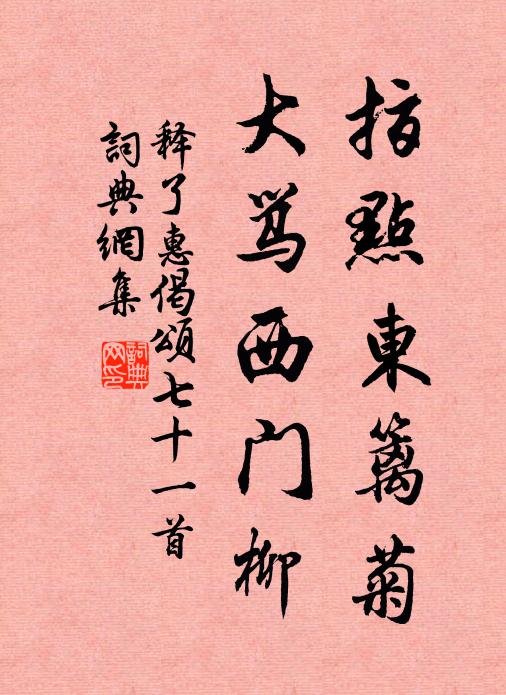 指點東篱菊
大骂西门柳
释了惠偈頌七十一首
詞典網集
詞典網印